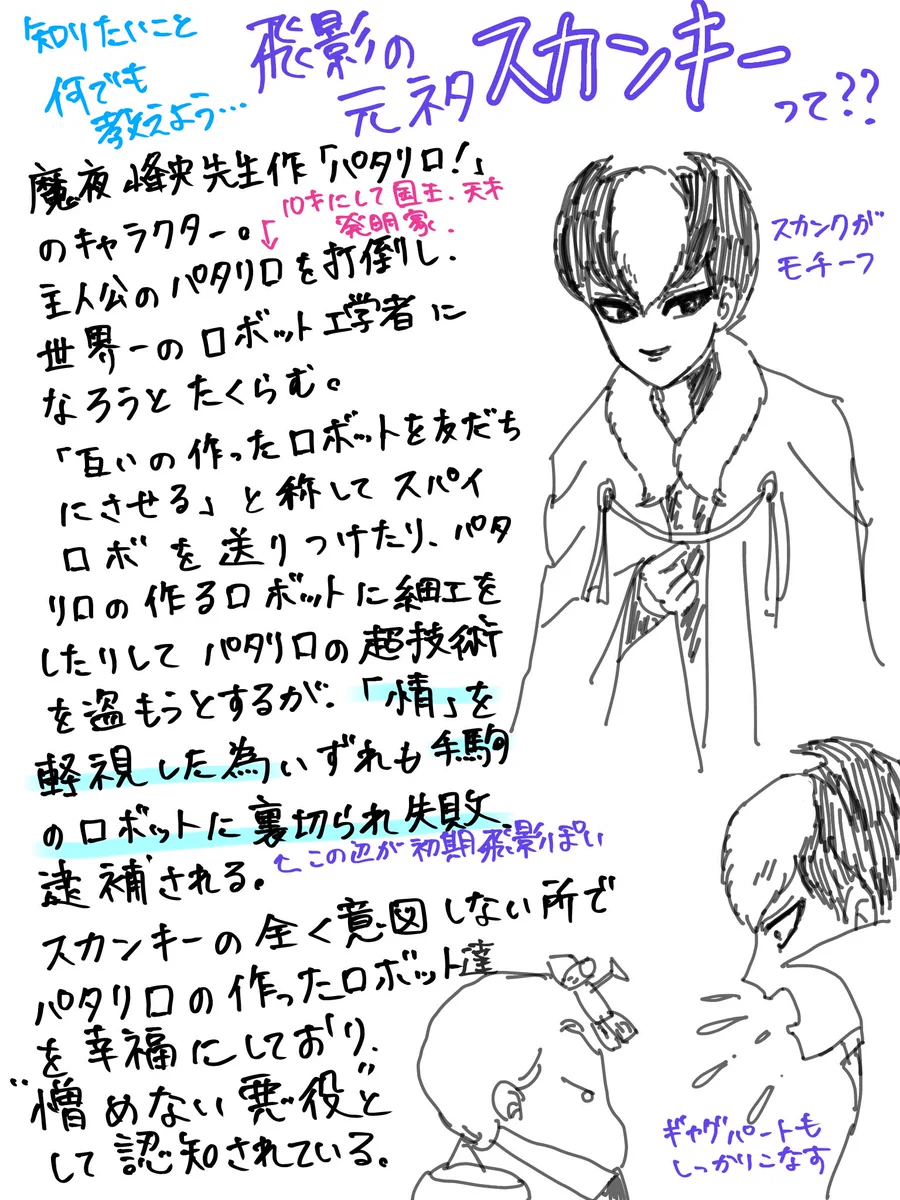 知りたいこと
何でも
教えよう…
飛影の
元ネタ
スカンキー
って??
魔夜峰央先生作「パタリロ!」
のキャラクター。
10才にして国王、天才
発明家.
主人公のパタリロを打倒し、
世界一のロボット工学者に
なろうとたくらむ。
「互いの作ったロボットを友だち
にさせる」と称してスパイ
ロボを送りつけたり、パタ
リロの作るロボットに細工を
したりしてパタリロの超技術
を盗もうとするが、「情」を
軽視した為いずれも手駒
のロボットに裏切られ失敗、
逮補される。
←この辺が初期飛影ぽい
スカンキーの全く意図しない所で
パタリロの作ったロボット達
を幸福にしており、
"憎めない悪役"と
して認知されている。
スカンクが
モチーフ
ギャグパートも
しっかりこなす